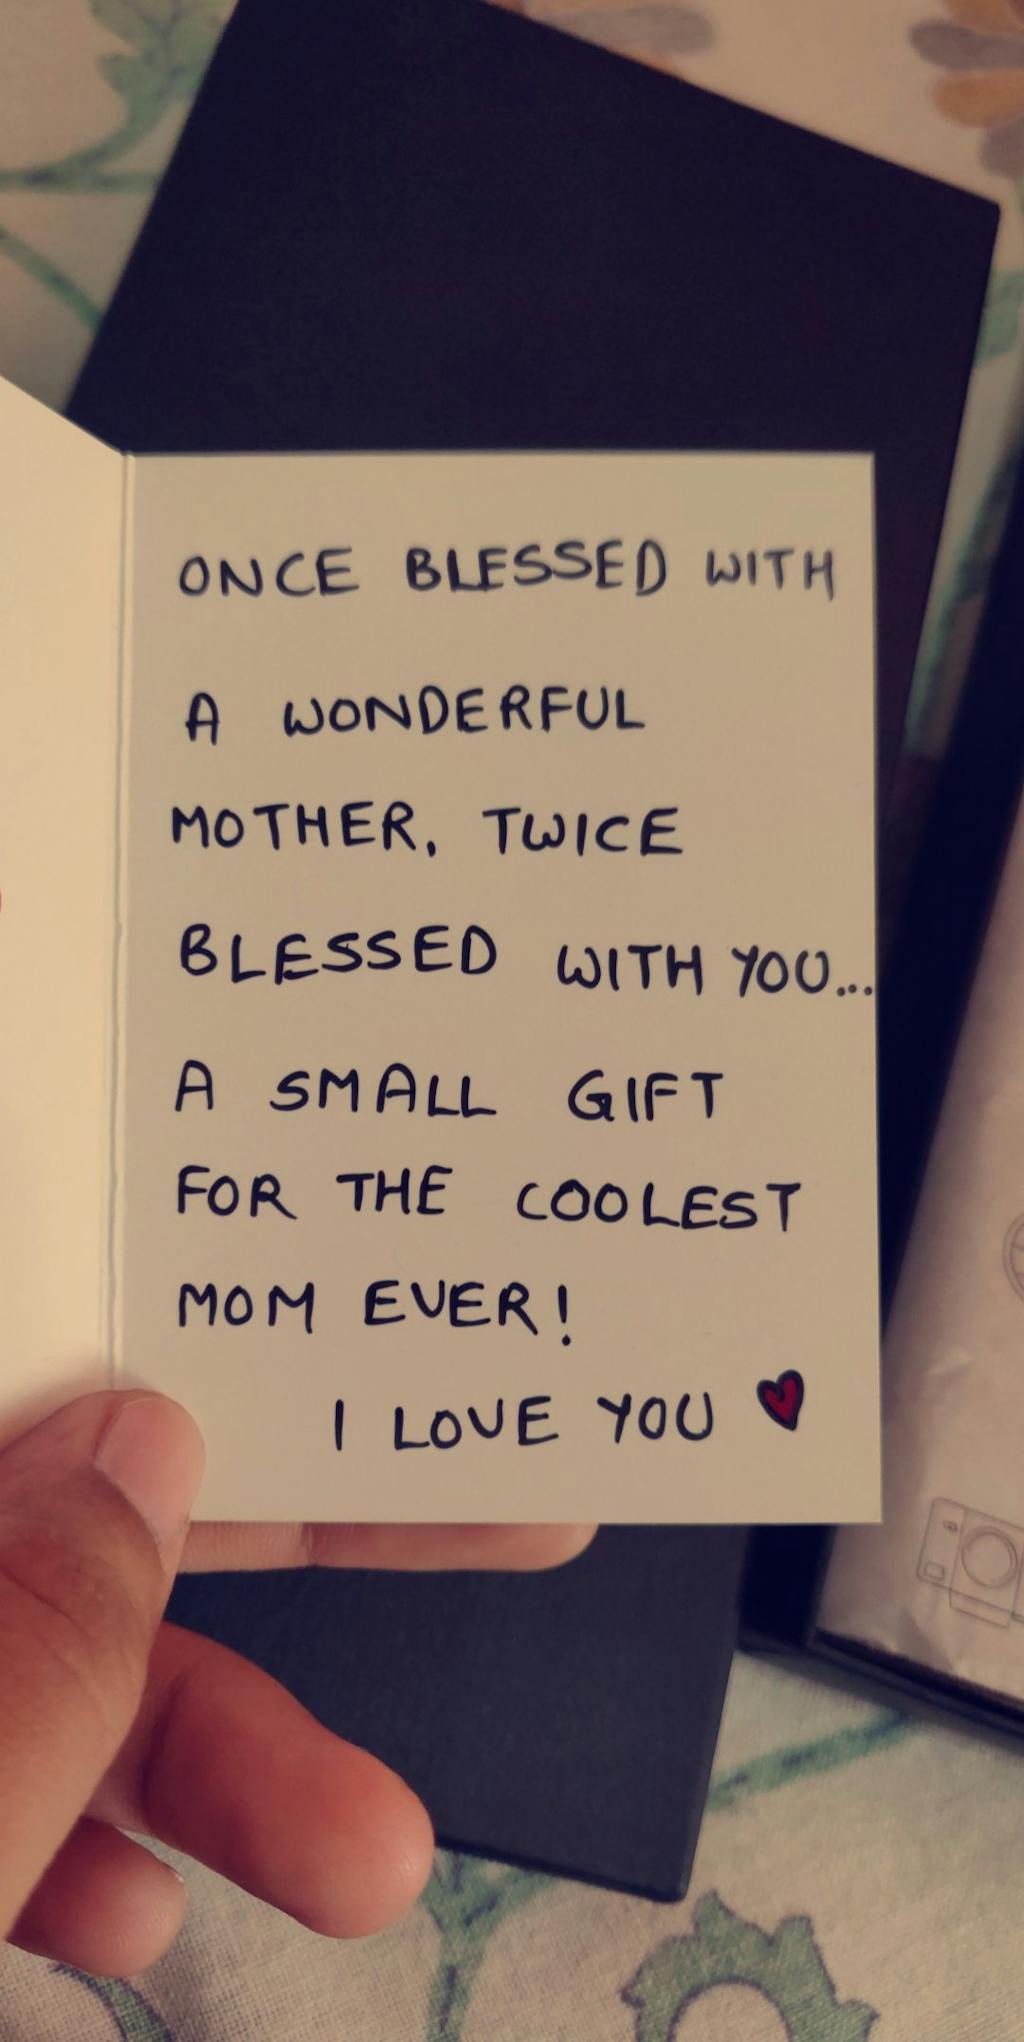 ONCE BLESSED WITH
A WONDERFUL
MOTHER, TWICE
BLESSED WITH YOU...
A SMALL GIFT
FOR THE COOLEST
MOM EVER!
I LOVE YOU ♥